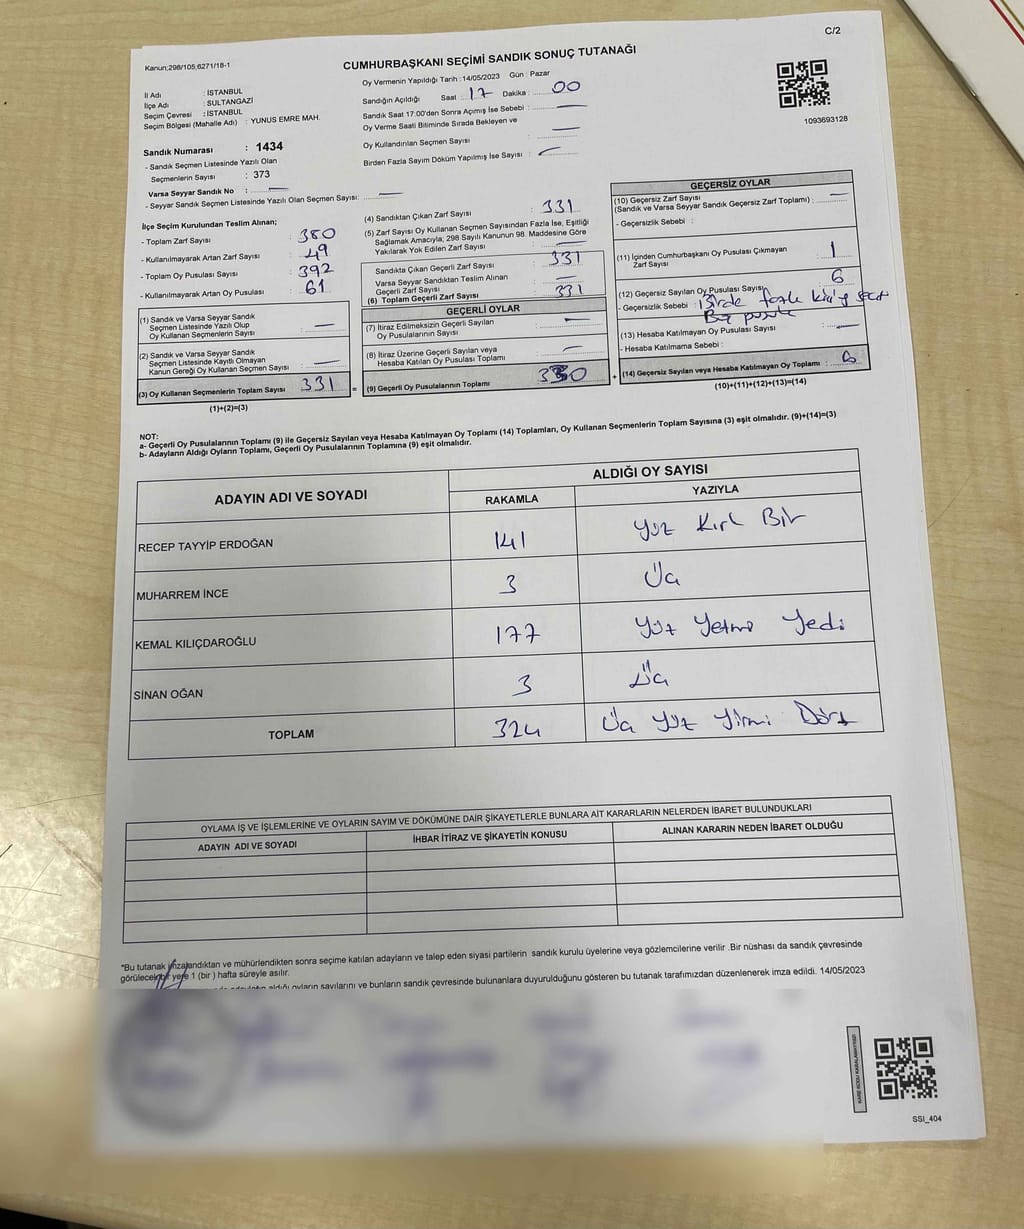 C/2
Kanun;298/105,6271/18-1
CUMHURBAŞKANI SEÇİMİ SANDIK SONUÇ TUTANAĞI
İl Adı : İSTANBUL
İlçe Adı : SULTANGAZİ
Seçim Çevresi : İSTANBUL
Seçim Bölgesi (Mahalle Adı) : YUNUS EMRE MAH.
Sandık Numarası : 1434
- Sandık Seçmen Listesinde Yazılı Olan
Seçmenlerin Sayısı : 373
Varsa Seyyar Sandık No : —
- Seyyar Sandık Seçmen Listesinde Yazılı Olan Seçmen Sayısı: —
Oy Vermenin Yapıldığı Tarih : 14/05/2023 Gün : Pazar
Sandığın Açıldığı Saat : 17 Dakika : 00
Sandık Saat 17:00'den Sonra Açımış İse Sebebi : —
Oy Verme Saati Bitiminde Sırada Bekleyen ve
Oy Kullandırılan Seçmen Sayısı : —
Birden Fazla Sayım Döküm Yapılmış İse Sayısı : —
1093693128
İlçe Seçim Kurulundan Teslim Alınan;
- Toplam Zarf Sayısı : 380
- Kullanılmayarak Artan Zarf Sayısı : 49
- Toplam Oy Pusulası Sayısı : 392
- Kullanılmayarak Artan Oy Pusulası : 61
(1) Sandık ve Varsa Seyyar Sandık
Seçmen Listesinde Yazılı Olup
Oy Kullanan Seçmenlerin Sayısı : —
(2) Sandık ve Varsa Seyyar Sandık
Seçmen Listesinde Kayıtlı Olmayan
Kanun Gereği Oy Kullanan Seçmen Sayısı : —
(3) Oy Kullanan Seçmenlerin Toplam Sayısı 331 =
(1)+(2)=(3)
(4) Sandıktan Çıkan Zarf Sayısı : 331
(5) Zarf Sayısı Oy Kullanan Seçmen Sayısından Fazla İse, Eşitliği
Sağlamak Amacıyla; 298 Sayılı Kanunun 98. Maddesine Göre
Yakılarak Yok Edilen Zarf Sayısı : —
Sandıkta Çıkan Geçerli Zarf Sayısı : 331
Varsa Seyyar Sandıktan Teslim Alınan
Geçerli Zarf Sayısı : —
(6) Toplam Geçerli Zarf Sayısı : 331
GEÇERLİ OYLAR
(7) İtiraz Edilmeksizin Geçerli Sayılan
Oy Pusulalarının Sayısı : —
(8) İtiraz Üzerine Geçerli Sayılan veya
Hesaba Katılan Oy Pusulası Toplamı : —
(9) Geçerli Oy Pusulalarının Toplamı : +
GEÇERSİZ OYLAR
(10) Geçersiz Zarf Sayısı
(Sandık ve Varsa Seyyar Sandık Geçersiz Zarf Toplamı) : —
- Geçersizlik Sebebi :
(11) İçinden Cumhurbaşkanı Oy Pusulası Çıkmayan
Zarf Sayısı : 1
(12) Geçersiz Sayılan Oy Pusulası Sayısı : 6
- Geçersizlik Sebebi : Birde fazla
(13) Hesaba Katılmayan Oy Pusulası Sayısı : —
- Hesaba Katılmama Sebebi :
(14) Geçersiz Sayılan veya Hesaba Katılmayan Oy Toplamı : 6
(10)+(11)+(12)+(13)=(14)
NOT:
a- Geçerli Oy Pusulalarının Toplamı (9) ile Geçersiz Sayılan veya Hesaba Katılmayan Oy Toplamı (14) Toplamları, Oy Kullanan Seçmenlerin Toplam Sayısına (3) eşit olmalıdır. (9)+(14)=(3)
b- Adayların Aldığı Oyların Toplamı, Geçerli Oy Pusulalarının Toplamına (9) eşit olmalıdır.
ADAYIN ADI VE SOYADI ALDIĞI OY SAYISI
RAKAMLA YAZIYLA
RECEP TAYYİP ERDOĞAN 141 Yüz Kırk Bir
MUHARREM İNCE 3 Üç
KEMAL KILIÇDAROĞLU 177 Yüz Yetmiş Yedi
SİNAN OĞAN 3 Üç
TOPLAM 324 Üç Yüz Yirmi Dört
OYLAMA İŞ VE İŞLEMLERİNE VE OYLARIN SAYIM VE DÖKÜMÜNE DAİR ŞİKAYETLERLE BUNLARA AİT KARARLARIN NELERDEN İBARET BULUNDUKLARI
ADAYIN ADI VE SOYADI İHBAR İTİRAZ VE ŞİKAYETİN KONUSU ALINAN KARARIN NEDEN İBARET OLDUĞU
*Bu tutanak imzalandıktan ve mühürlendikten sonra seçime katılan adayların ve talep eden siyasi partilerin sandık kurulu üyelerine veya gözlemcilerine verilir .Bir nüshası da sandık çevresinde
görülecek bir yere 1 (bir ) hafta süreyle asılır.
aldığı oyların sayılarını ve bunların sandık çevresinde bulunanlara duyurulduğunu gösteren bu tutanak tarafımızdan düzenlenerek imza edildi. 14/05/2023
SSI_404